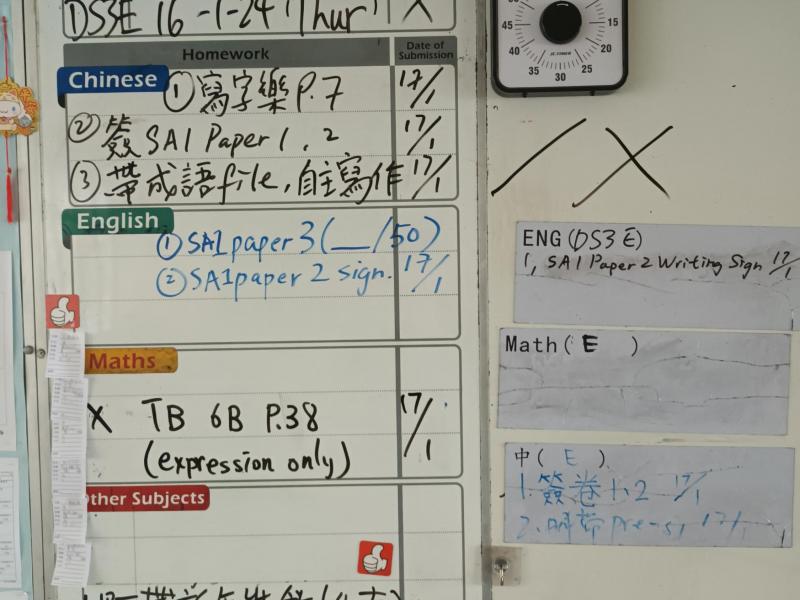 DS3E 16-1-24 (Thur) X
Homework
Date of Submission
Chinese
① 寫字樂 P.7 17/1
② 簽 SA1 Paper 1, 2 17/1
③ 帶成語file, 自主寫作 17/1
English
① SA1 paper 3 (__/50)
② SA1 paper 2 sign. 17/1
Maths
X TB 6B P.38 17/1
(expression only)
Other Subjects
45 15
40 20
35 30 25
ENG (DS3 E)
1, SA1 Paper 2 Writing Sign 17/1
Math ( E )
中 ( E )
1. 簽卷 1, 2 17/1
2. pre-s1 17/1